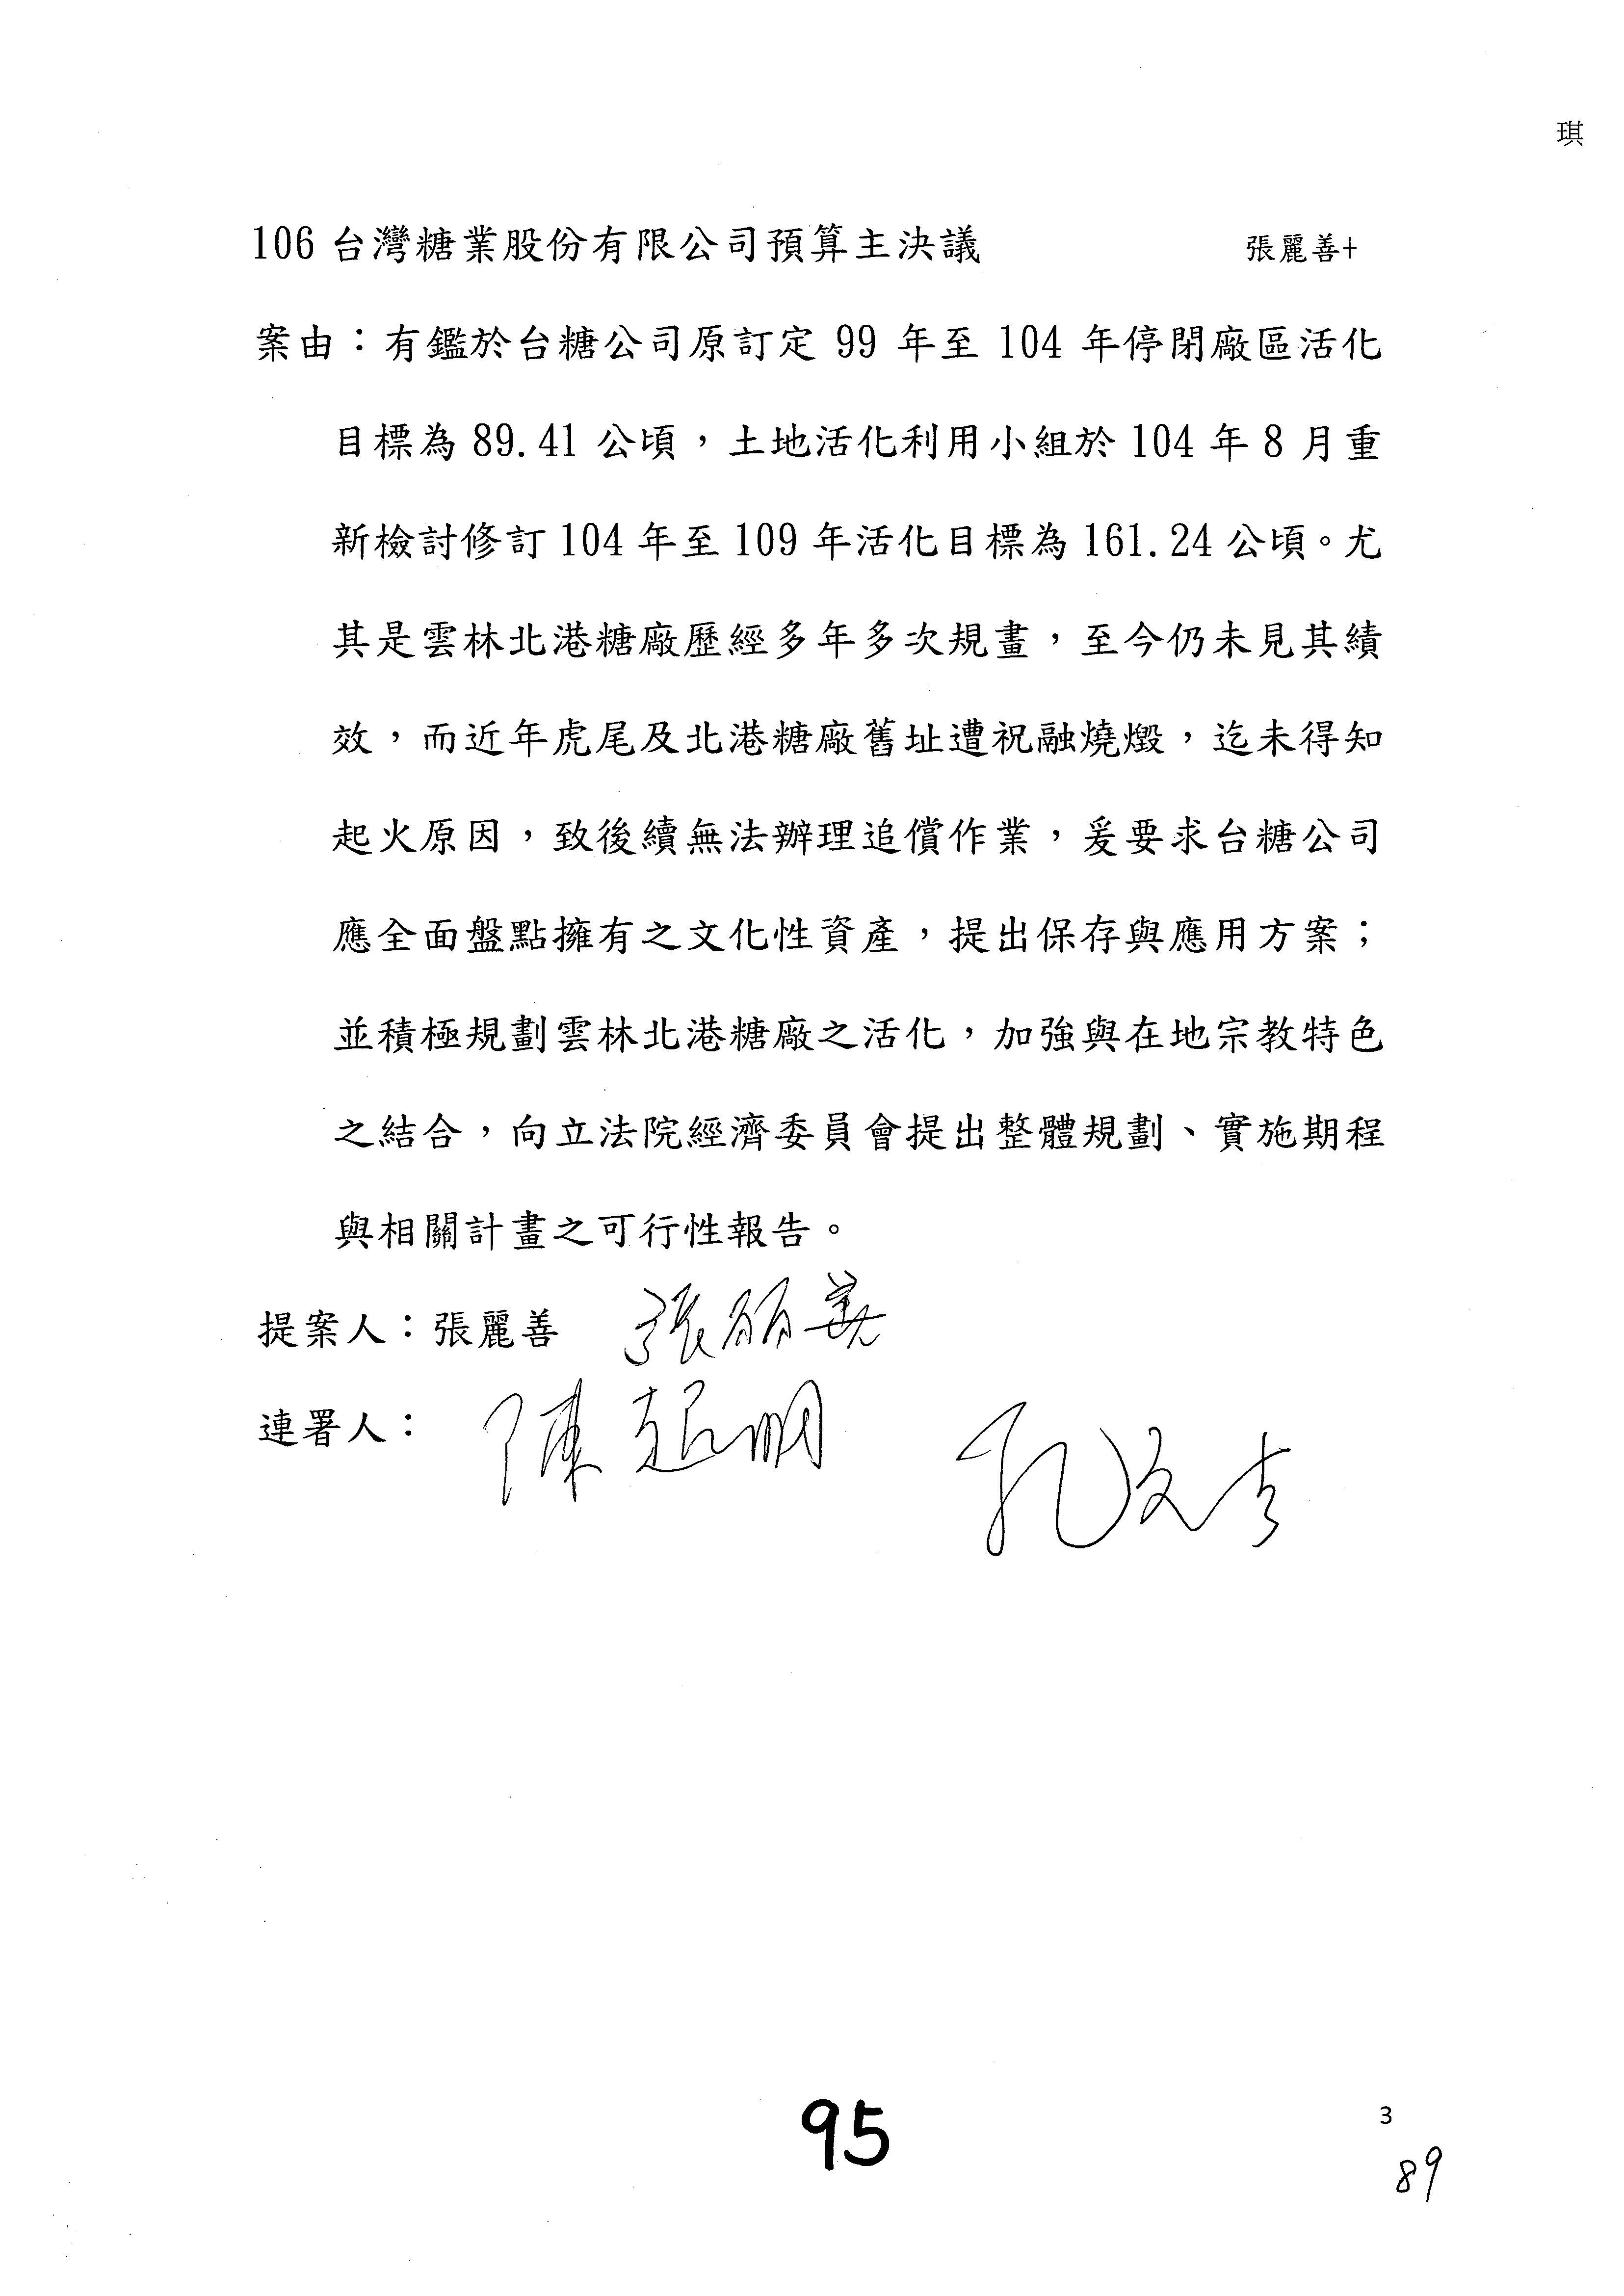 琪
106 台灣糖業股份有限公司預算主決議 張麗善+
案由：有鑑於台糖公司原訂定 99 年至 104 年停閉廠區活化
目標為 89.41 公頃，土地活化利用小組於 104 年 8 月重
新檢討修訂 104 年至 109 年活化目標為 161.24 公頃。尤
其是雲林北港糖廠歷經多年多次規畫，至今仍未見其績
效，而近年虎尾及北港糖廠舊址遭祝融燒燬，迄未得知
起火原因，致後續無法辦理追償作業，爰要求台糖公司
應全面盤點擁有之文化性資產，提出保存與應用方案；
並積極規劃雲林北港糖廠之活化，加強與在地宗教特色
之結合，向立法院經濟委員會提出整體規劃、實施期程
與相關計畫之可行性報告。
提案人：張麗善 張麗善
連署人： 陳超明 孔文吉
95
3
89